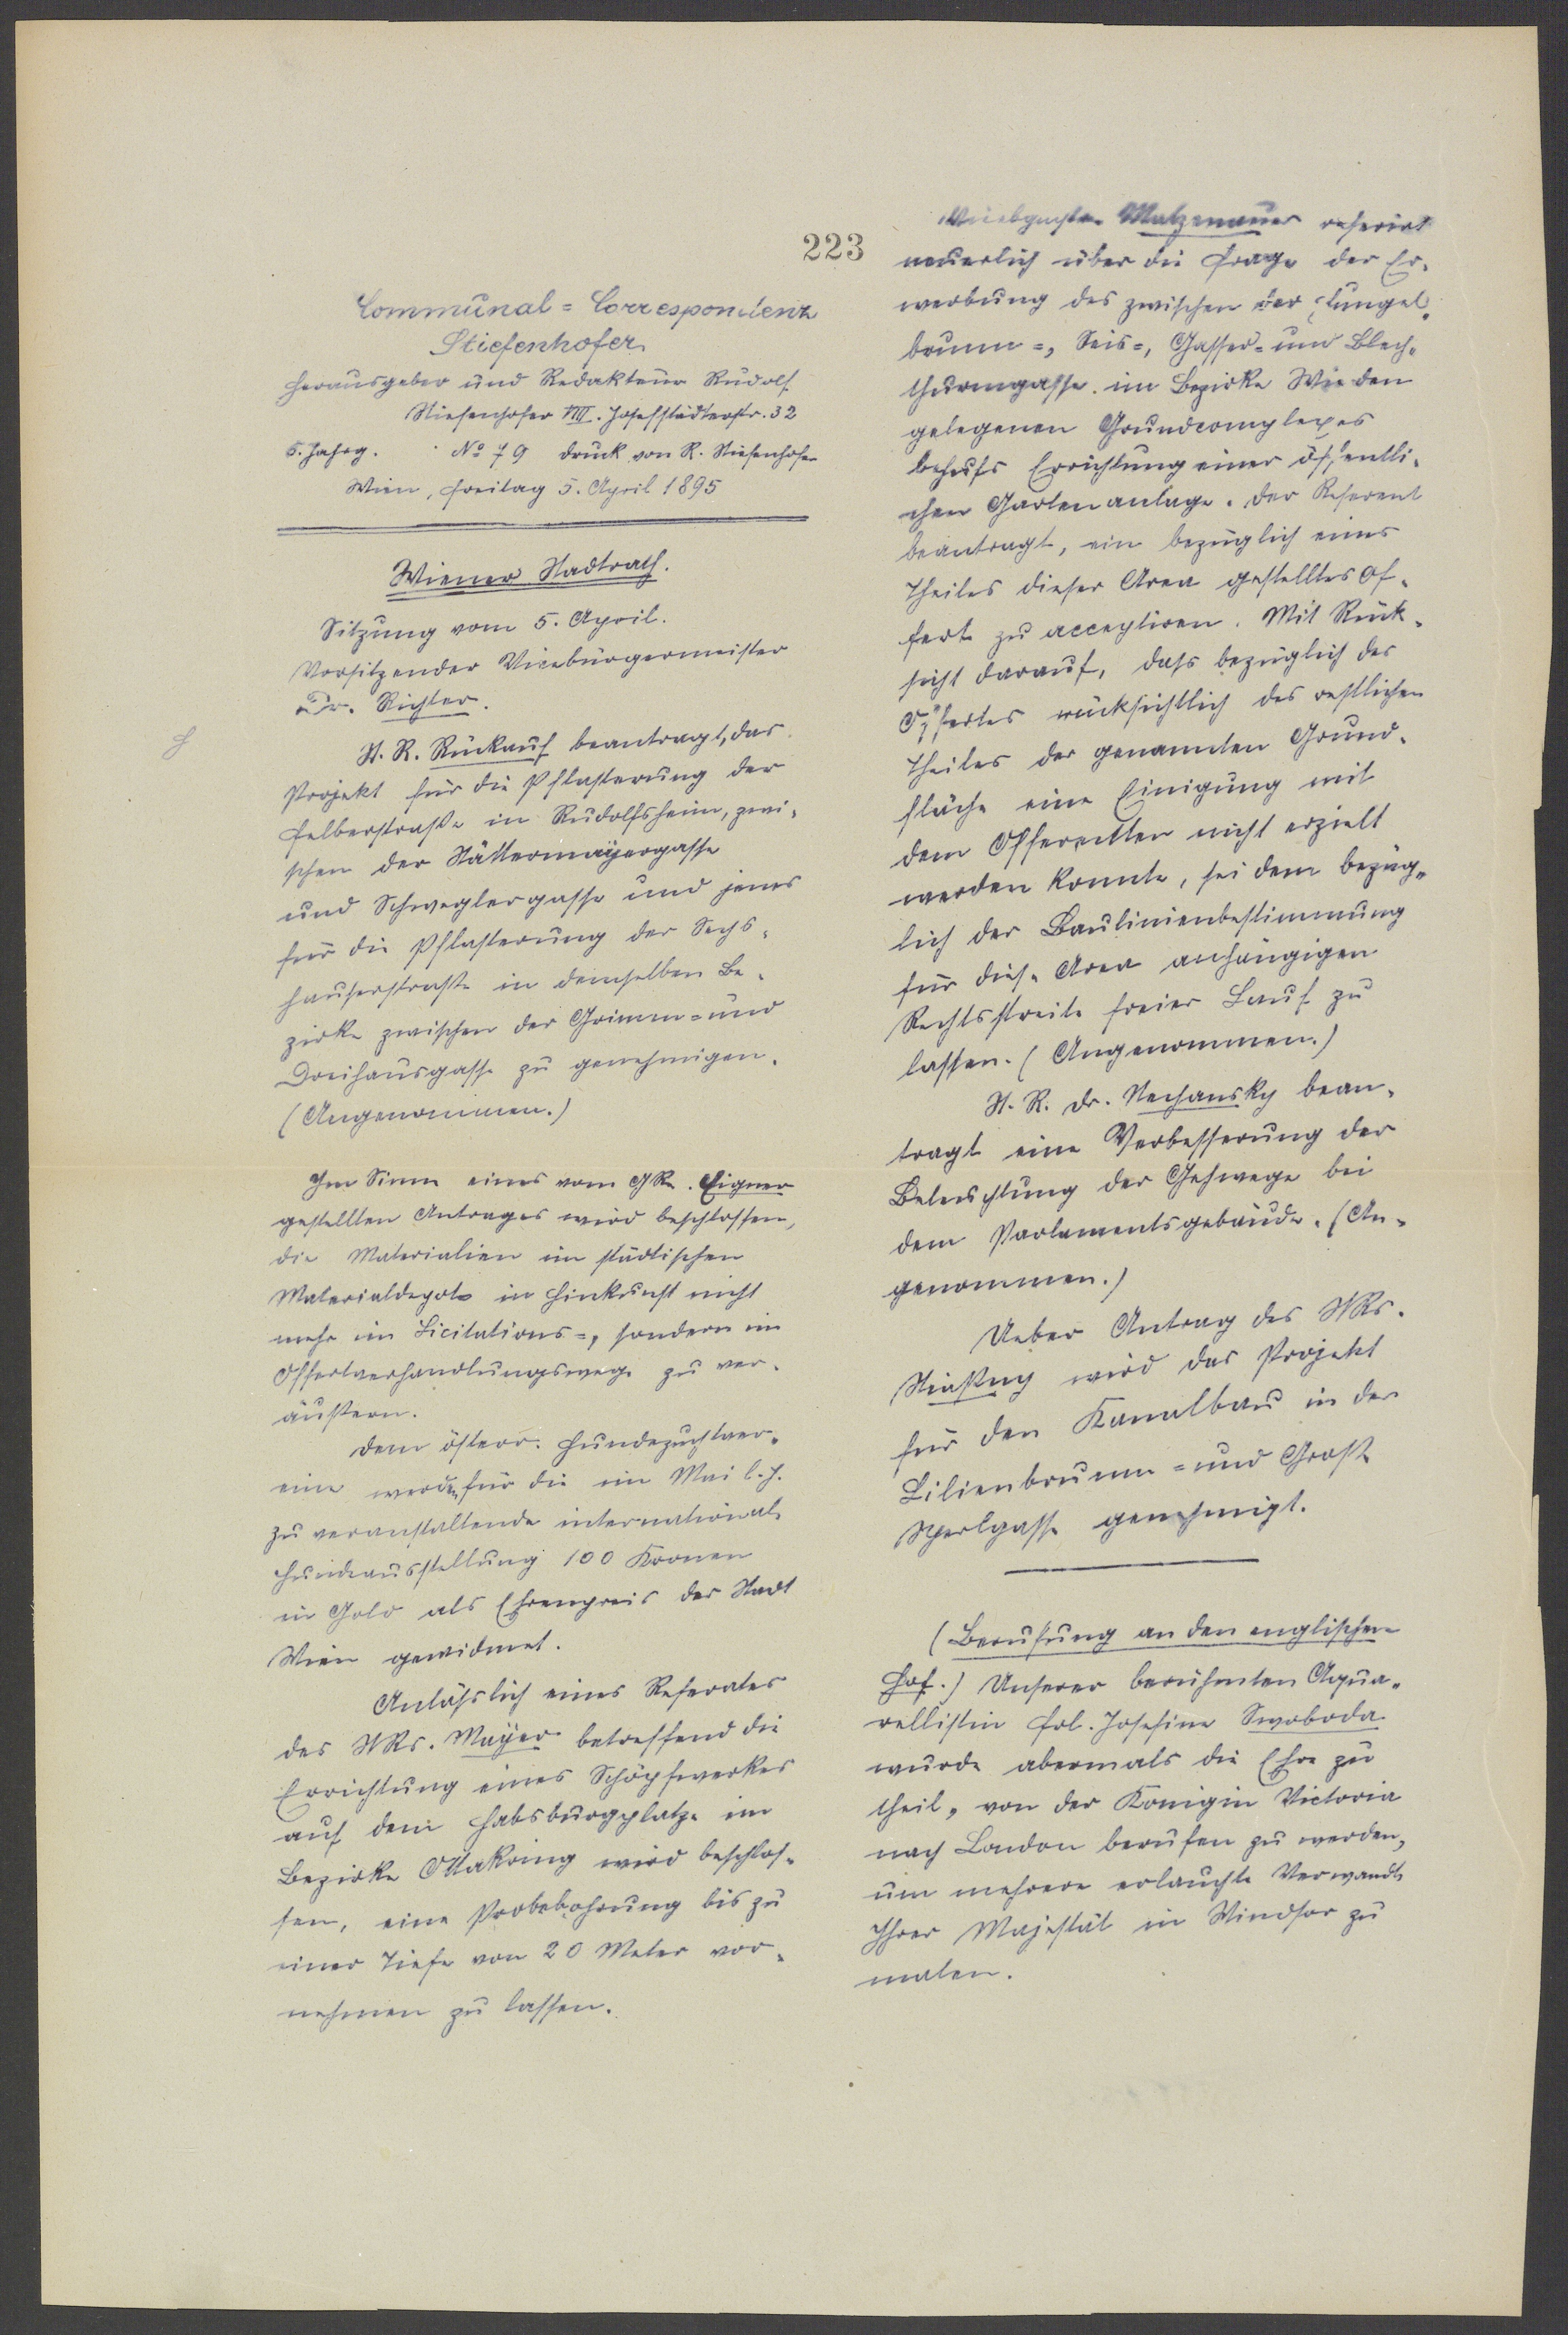 223
Communal=Correspondenz
Stiefenhofer
Herausgeber und Redakteur Rudolf
Stiefenhofer VIII. Josefstädterstr. 32
5. Jahrg. No 79 Druck von R. Stiefenhofer
Wien, Freitag 5. April 1895
Wiener Stadtrath.
Sitzung vom 5. April.
Vorsitzender Vicebürgermeister
Dr. Richter.
St. R. Rückauf beantragt, das
Projekt für die Pflasterung der
Felberstraße in Rudolfsheim, zwi-
schen der Stättermayergasse
und Schweglergasse und jenes
für die Pflasterung der Sechs-
hauserstraße in demselben Be-
zirke zwischen der Grimm= und
Dreihausgasse zu genehmigen.
(Angenommen.)
Im Sinne eines vom GR. Eigner
gestellten Antrages wird beschlossen,
die Materialien im städtischen
Materialdepot in Hinkunft nicht
mehr im Licitations=, sondern im
Offertverhandlungswege zu ver-
äußern.
Dem österr. Hundezuchtver-
eine werden für die im Mai l. J.
zu veranstaltende international.
Hundeausstellung 100 Kronen
in Gold als Ehrenpreis der Stadt
Wien gewidmet.
Anläßlich eines Referates
des StRs. Mayer betreffend die
Errichtung eines Schöpfwerkes
auf dem Habsburgplatze im
Bezirke Ottakring wird beschlos-
sen, eine Probebohrung bis zu
einer Tiefe von 20 Meter vor-
nehmen zu lassen.
Matzenauer referirt
neuerlich über die Frage der Er-
werbung des zwischen der Klungel-
brunn=, Seis=, Gasser= und Blech-
thurmgasse im Bezirke Wieden
gelegenen Grundcomplexes
behufs Errichtung einer öffentli-
chen Gartenanlage. Der Referent
beantragt, ein bezüglich eines
Theiles dieser Area gestelltes Of-
fert zu acceptiren. Mit Rück-
sicht darauf, daß bezüglich des
Offertes rücksichtlich des restlichen
Theiles der genannten Grund-
fläche eine Einigung mit
dem Offerenten nicht erzielt
werden konnte, sei dem bezüg-
lich der Baulinienbestimmung
für diese Area anhängigen
Rechtsstreite freier Lauf zu
lassen. (Angenommen.)
St. R. Dr. Nechansky bean-
tragt eine Verbesserung der
Beleuchtung der Gehwege bei
dem Parlamentsgebäude. (An-
genommen.)
Ueber Antrag des StRs.
Stiaßny wird das Projekt
für den Kanalbau in der
Lilienbrunn= und Große
Sperlgasse genehmigt.
(Berufung an den englischen
Hof.) Unserer berühmten Aqua-
rellistin Frl. Josefine Swoboda
wurde abermals die Ehre zu
theil, von der Königin Victoria
nach London berufen zu werden,
um mehrere erlauchte Verwandte
Ihrer Majestät in Windsor zu
malen.